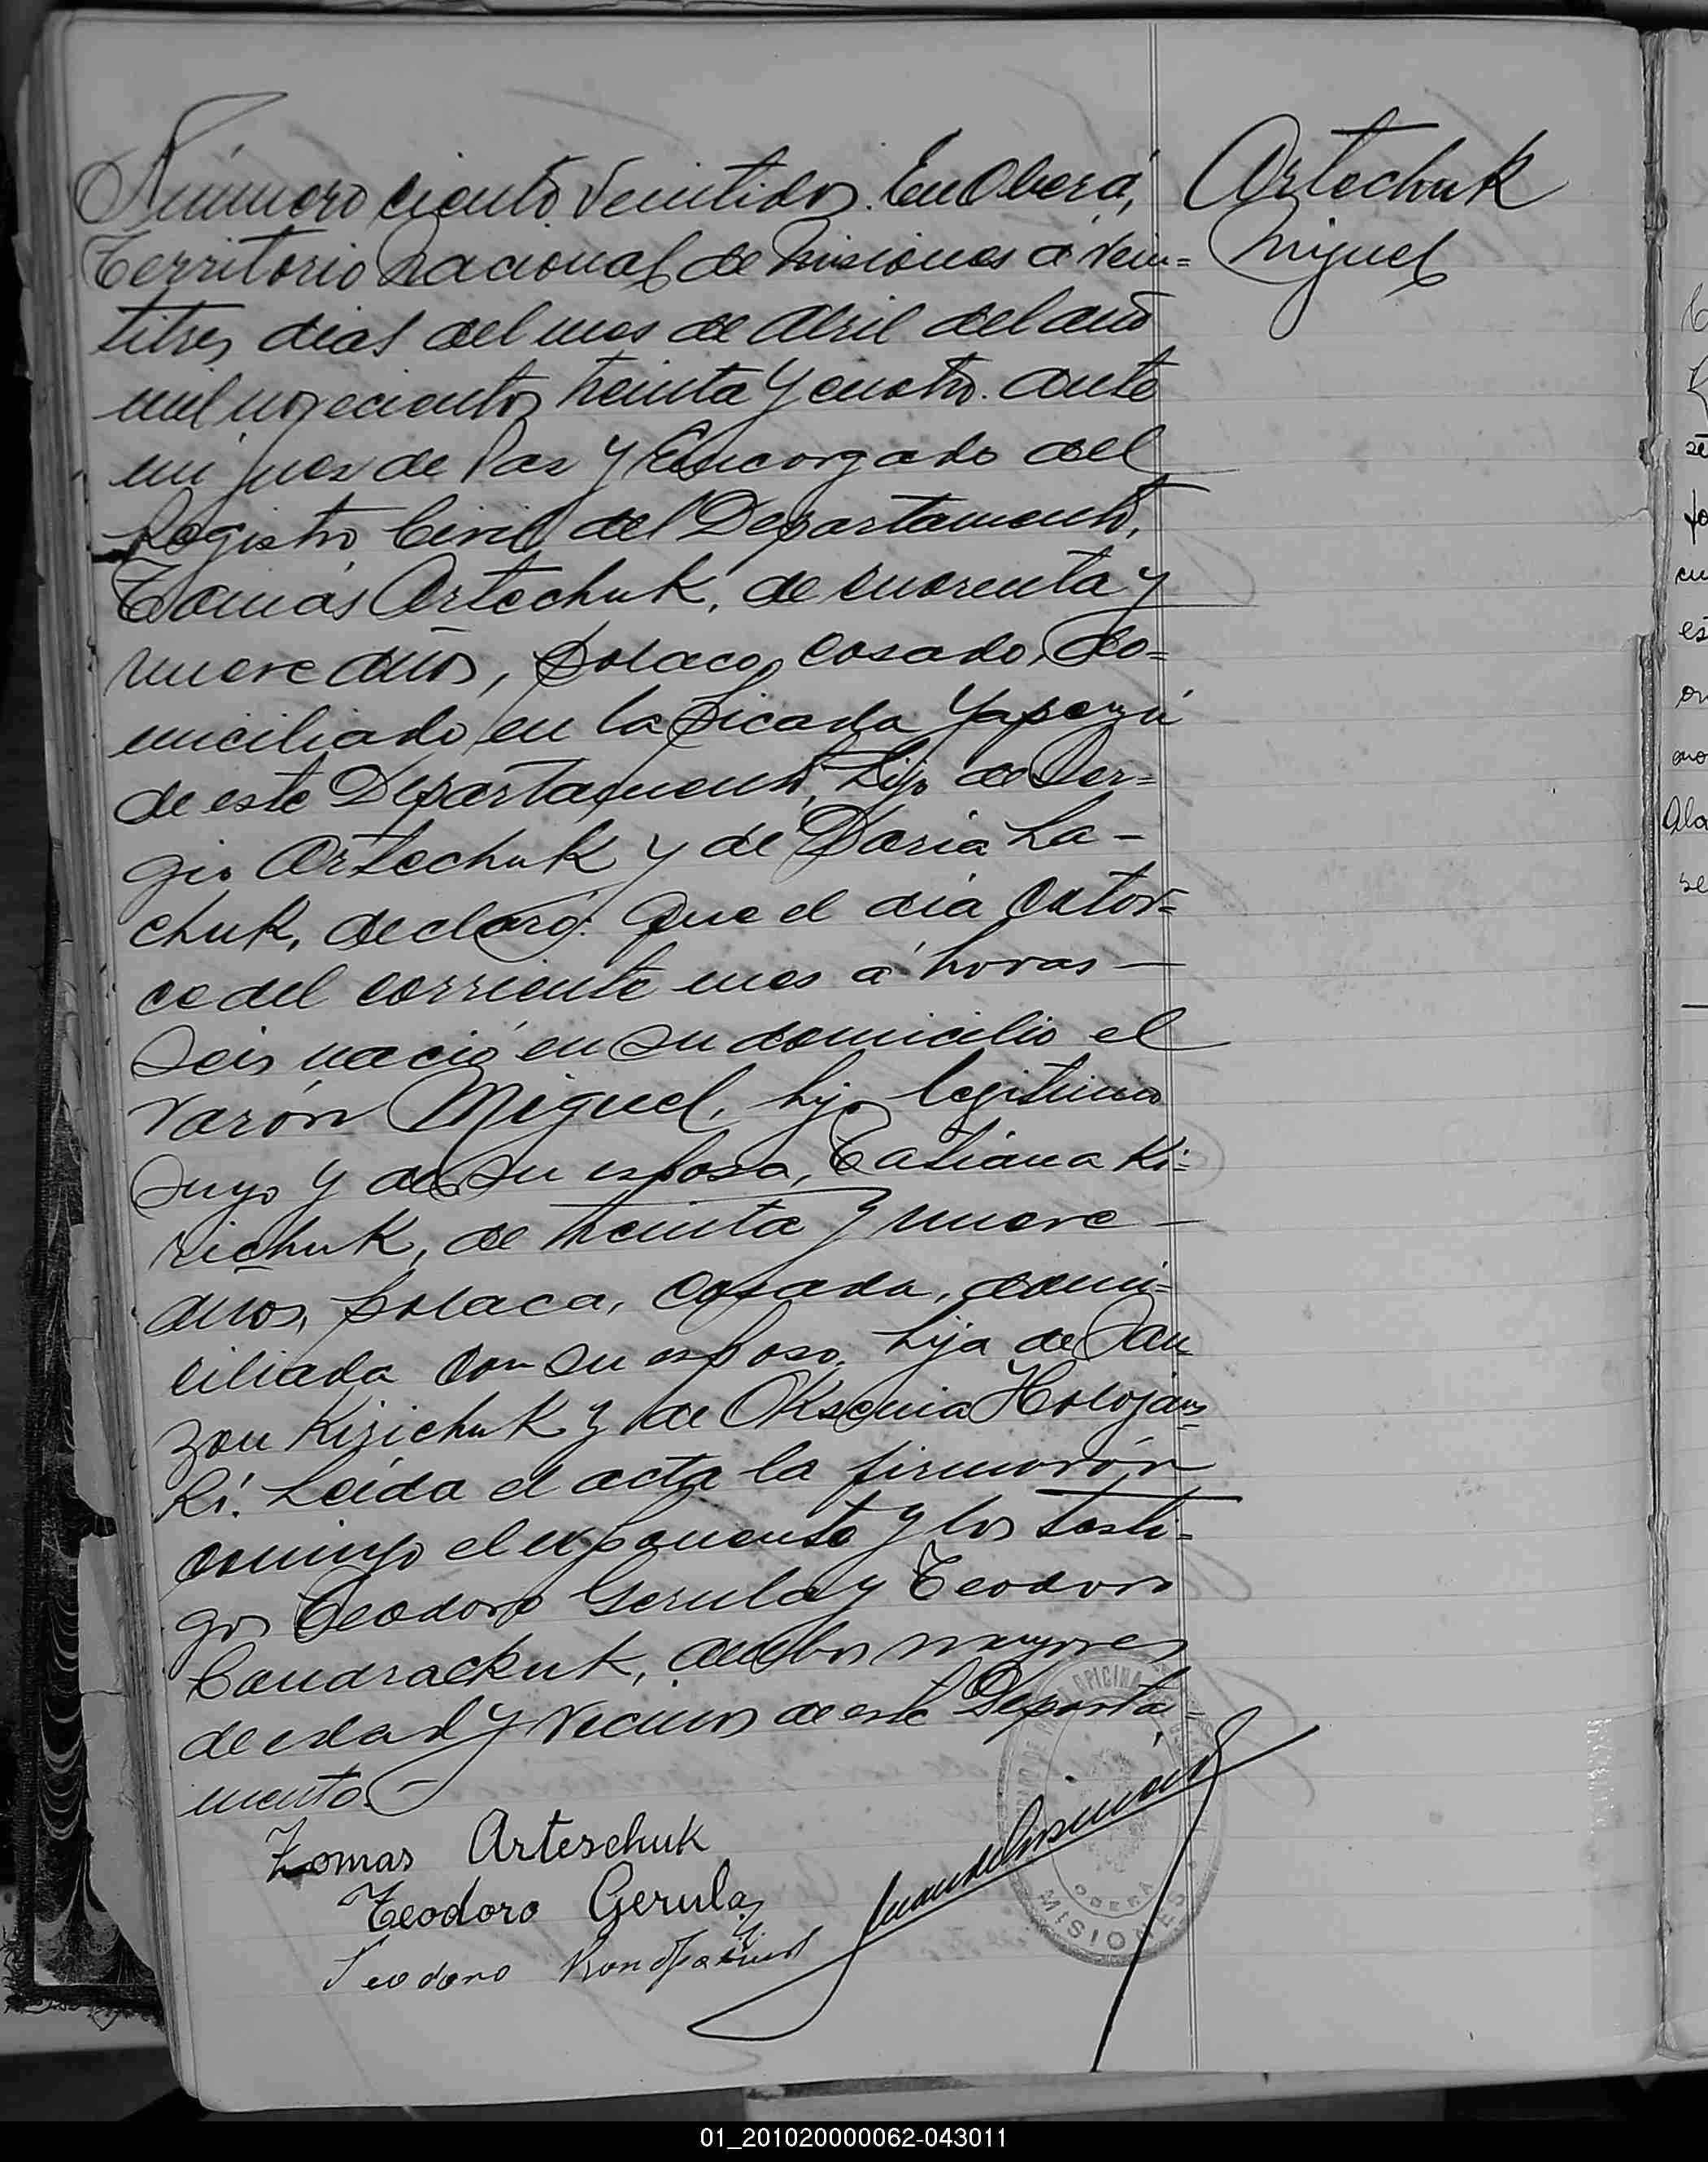 Número ciento veintidos. En Oberá,
Territorio Nacional de Misiones a vein=
titres dias del mes de Abril del año
mil novecientos treinta y cuatro. Ante
mi Juez de Paz y Encargado del
Registro Civil del Departamento,
Tomás Artechuk, de cuarenta y
nueve años, polaco, casado, do=
miciliado en la Picada Yapeyú
de este Departamento, hijo de Ser=
gio Artechuk y de Daria La-
chuk, declaró: Que el día cator=
ce del corriente mes a horas —
seis nació en su domicilio el
varón Miguel, hijo legitimo
suyo y de su esposa, Tatiana Ki=
richuk, de treinta y nueve —
años, polaca, casada, domi=
ciliada con su esposo, hija de
Kirichuk y de Oksenia Holojans=
ki. Leída el acta la firmarón
conmigo el exponente y los testi=
gos Teodoro Gerula y Teodoro
Condrackuk, ambos mayores
de edad y vecinos de este Departa=
mento.—
Tomas Arteschuk
Teodoro Gerula
Teodoro
Artechuk
Miguel
OFICINA
OBERA
MISIONES
01_201020000062-043011